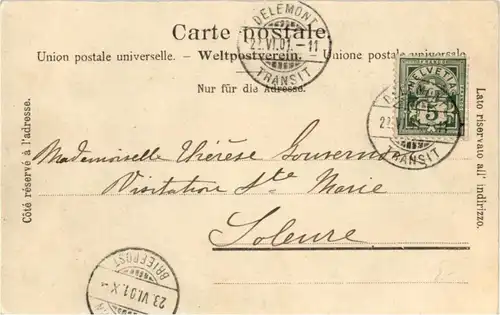 Carte postale.
DELEMONT
22.VI.01.-11
TRANSIT
Union postale universelle. – Weltpostverein. – Unione postale universale
Nur für die Adresse.
HELVETIA
5
DELEMONT
22.
TRANSIT
Côté réservé à l'adresse.
Lato riservato all' indirizzo.
Mademoiselle Thérèse
Visitation Ste Marie
Soleure
BRIEFPOST
23.VI.01.X